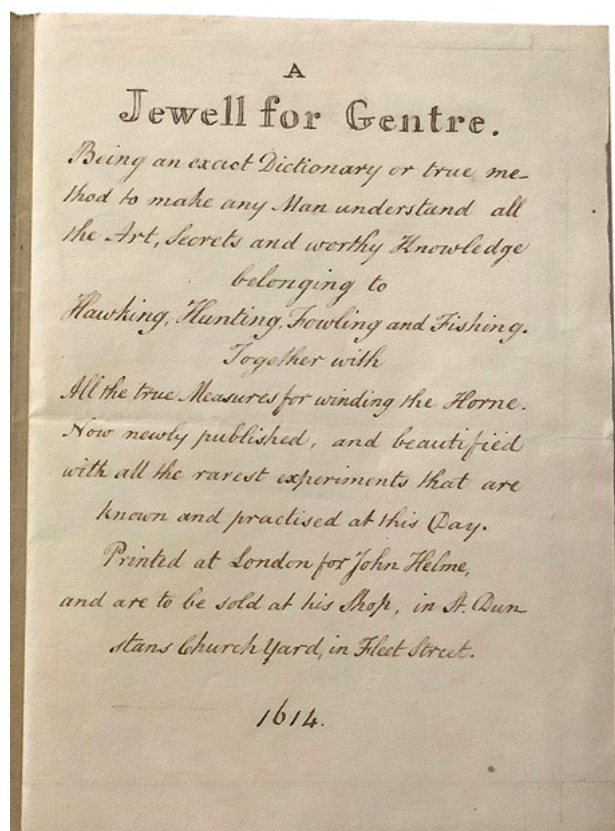 A
Jewell for Gentre.
Being an exact Dictionary or true me-
thod to make any Man understand all
the Art, Secrets and worthy Knowledge
belonging to
Hawking, Hunting, Fowling and Fishing.
Together with
All the true Measures for winding the Horne.
Now newly published, and beautified
with all the rarest experiments that are
known and practised at this Day.
Printed at London for John Helme,
and are to be sold at his Shop, in St. Dun
stans Church Yard, in Fleet Street.
1614.